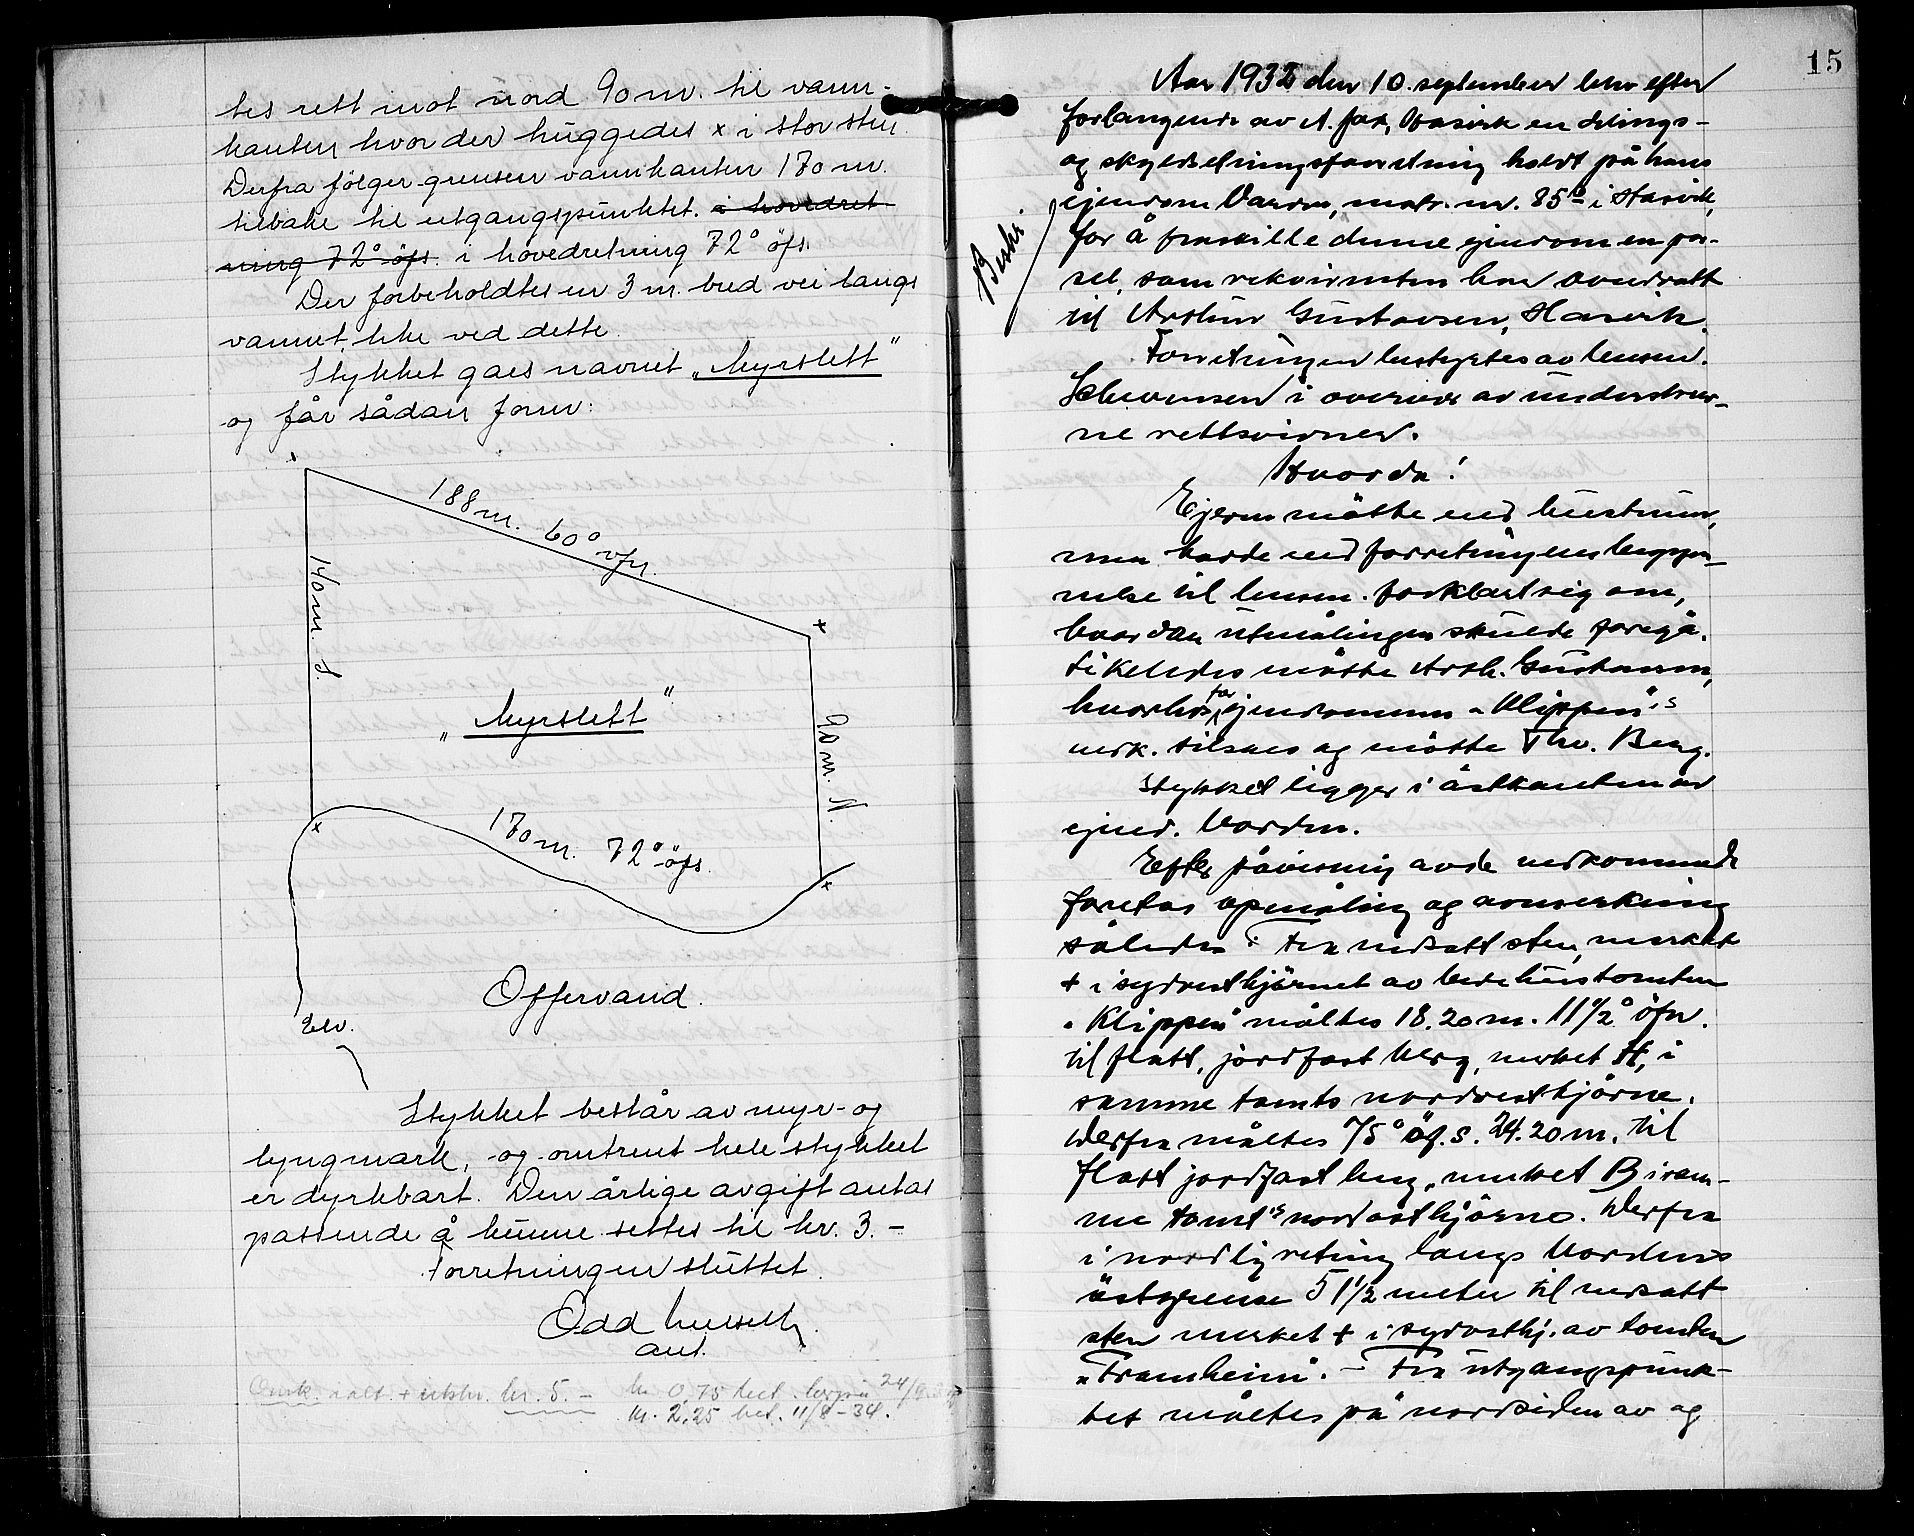 tes rett mot nord 90 m. til vann-
kanten hvor der huggedes x i stor sten.
Derfra følger grensen vannkanten 170 m.
tilbake til utgangspunktet. i hovedret
ning 72° öfs. i hovedretning 72° öfs.
Der forbeholdtes en 3 m. bred vei langs
vannet, like ved dette.
Stykket gaes navnet „Myrslett"
og får sådan form:
188 m. 60° vfn.
140 m. S.
„Myrslett"
90 m. N
170 m. 72° öfs.
Offervand.
Elv.
Stykket består av myr- og
lyngmark, og omtrent hele stykket
er dyrkbart. Den årlige avgift antas
passende å kunne settes til kr. 3.-
Forretningen sluttet.
Odd
aut.
Omk. ialt + utskr. kr. 5.- kr. 0,75 bet. 24/9
kr. 2,25 bet. 11/8-34.
15
Aar 1932 den 10. september blev efter
forlangende av A. Hasvik en delings-
og skylddelingsforretning holdt på hans
ejendom Varden, matr. nr. 85 i Hasvik,
for å fraskille denne ejendom en par-
sel, som rekvirenten har overdratt
til Arthur Gustavsen, Hasvik.
Beskr
Forretningen bestyrtes av lensm.
i overvær av underskrev-
ne rettsvidner.
Hvorda!
Ejeren mötte ved hustruen,
men havde ved forretningens begyn-
nelse til lensm. forklart sig om,
hvordan utmålingen skulde foregå.
Likeledes mötte Arth. Gustavsen,
hvorhos for ejendommen „Klippen"'s
verk. tilsaes og mötte Thv. Berg.
Stykket ligger i östkanten av
ejend. Varden.
Efter påvisning av de vedkommende
foretas opmåling og avmerkning
således: Fra nedsatt sten, merket
+ i sydvesthjörnet av bedehustomten
„Klippen" måltes 18.20 m. 11½° öfn.
til flatt, jordfast berg, merket H, i
samme tomts nordvesthjörne.
Derfra måltes 75° öf.s. 24.20 m. til
flatt jordfast berg, merket B i sam-
me tomt's nordosthjörne. Derfra
i nordlig retning langs Vardens
östgrense 51½ meter til nedsatt
sten merket + i sydosthj. av tomten
„Framheim". - Fra utgangspunk-
tet måltes på nordsiden av og